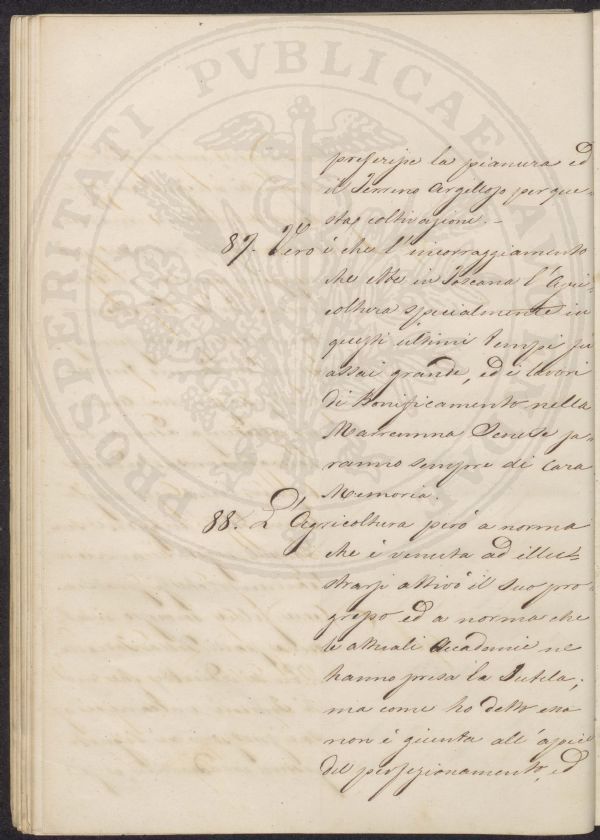 PROSPERITATI PVBLICAE
preferisce la pianura ed
il Terreno Argilloso per que-
sta coltivazione. –
87. Vero è che l'incorraggiamento
che ebbe in Toscana l'Agri-
coltura specialmente in
questi ultimi tempi fu
assai grande, ed i lavori
di Bonificamento nella
Maremma Senese sa-
ranno sempre di Cara
Memoria.
88. L'Agricoltura però a norma
che è venuta ad illus-
trarsi attivò il suo pro-
gresso ed a norma che
le attuali Accademie ne
hanno presa la Tutela;
ma come ho detto essa
non è giunta all'apice
del perfezionamento, ed